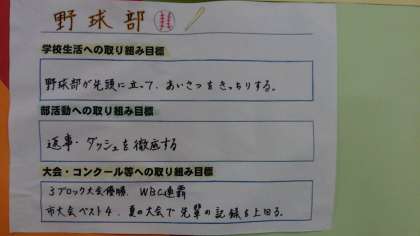 野球部
学校生活への取り組み目標
野球部が先頭に立って、あいさつをきっちりする。
部活動への取り組み目標
返事・ダッシュを徹底する
大会・コンクール等への取り組み目標
3ブロック大会優勝、WBC連覇
市大会ベスト4、夏の大会で先輩の記録を上回る。